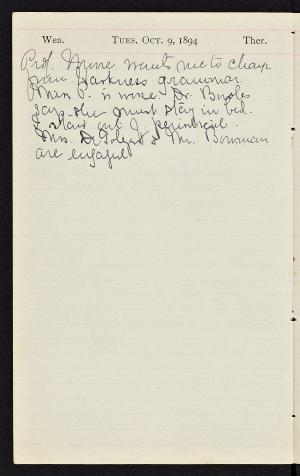 Wea. TUES. OCT. 9, 1894 Ther.
Prof. wants me to change
from Harkness grammar.
Miss P. is worse. Dr.
says she must stay in bed.
I stay out of
Mrs. & Mr. Bowman
are engaged